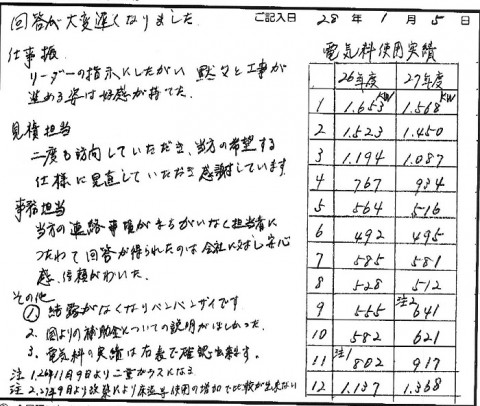 回答が大変遅くなりました
ご記入日 28年 1月 5日
仕事振
リーダーの指示にしたがい 黙々と工事が
進める姿は好感が持てた.
見積担当
二度も訪向していただき、当方の希望する
仕様に見直していただき感謝しています
事務担当
当方の連絡事項がまちがいなく担当者に
つたわって回答が得られたのは会社に対し安心
感、信頼がわいた.
その他
①. 結露がなくなりバンバンザイです
2. 国よりの補助金についての説明がほしかった.
3. 電気料の実績は右表で確認出来ます.
注1. 26年11月9日より二重ガラスになる
注2. 27年9月より改築により 使用の増加で比較が出来ない
電気料使用実績
26年度 27年度
1 1.653KW 1.568KW
2 1.523 1.450
3 1.194 1.087
4 767 934
5 564 516
6 492 495
7 585 581
8 528 512
9 555 注2 641
10 582 621
11 注1 802 917
12 1.137 1.368